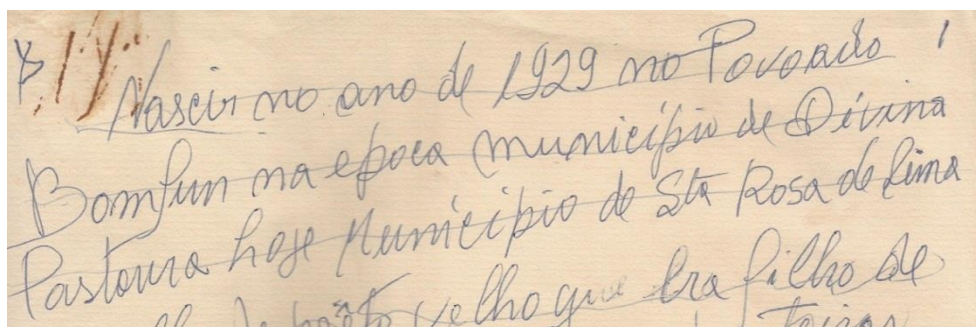 Nascir no ano de 1929 no Povoado
Bomfim na epoca municipio de Divina
Pastoura hoje Municipio de Sta Rosa de Lima
velho que era filho de